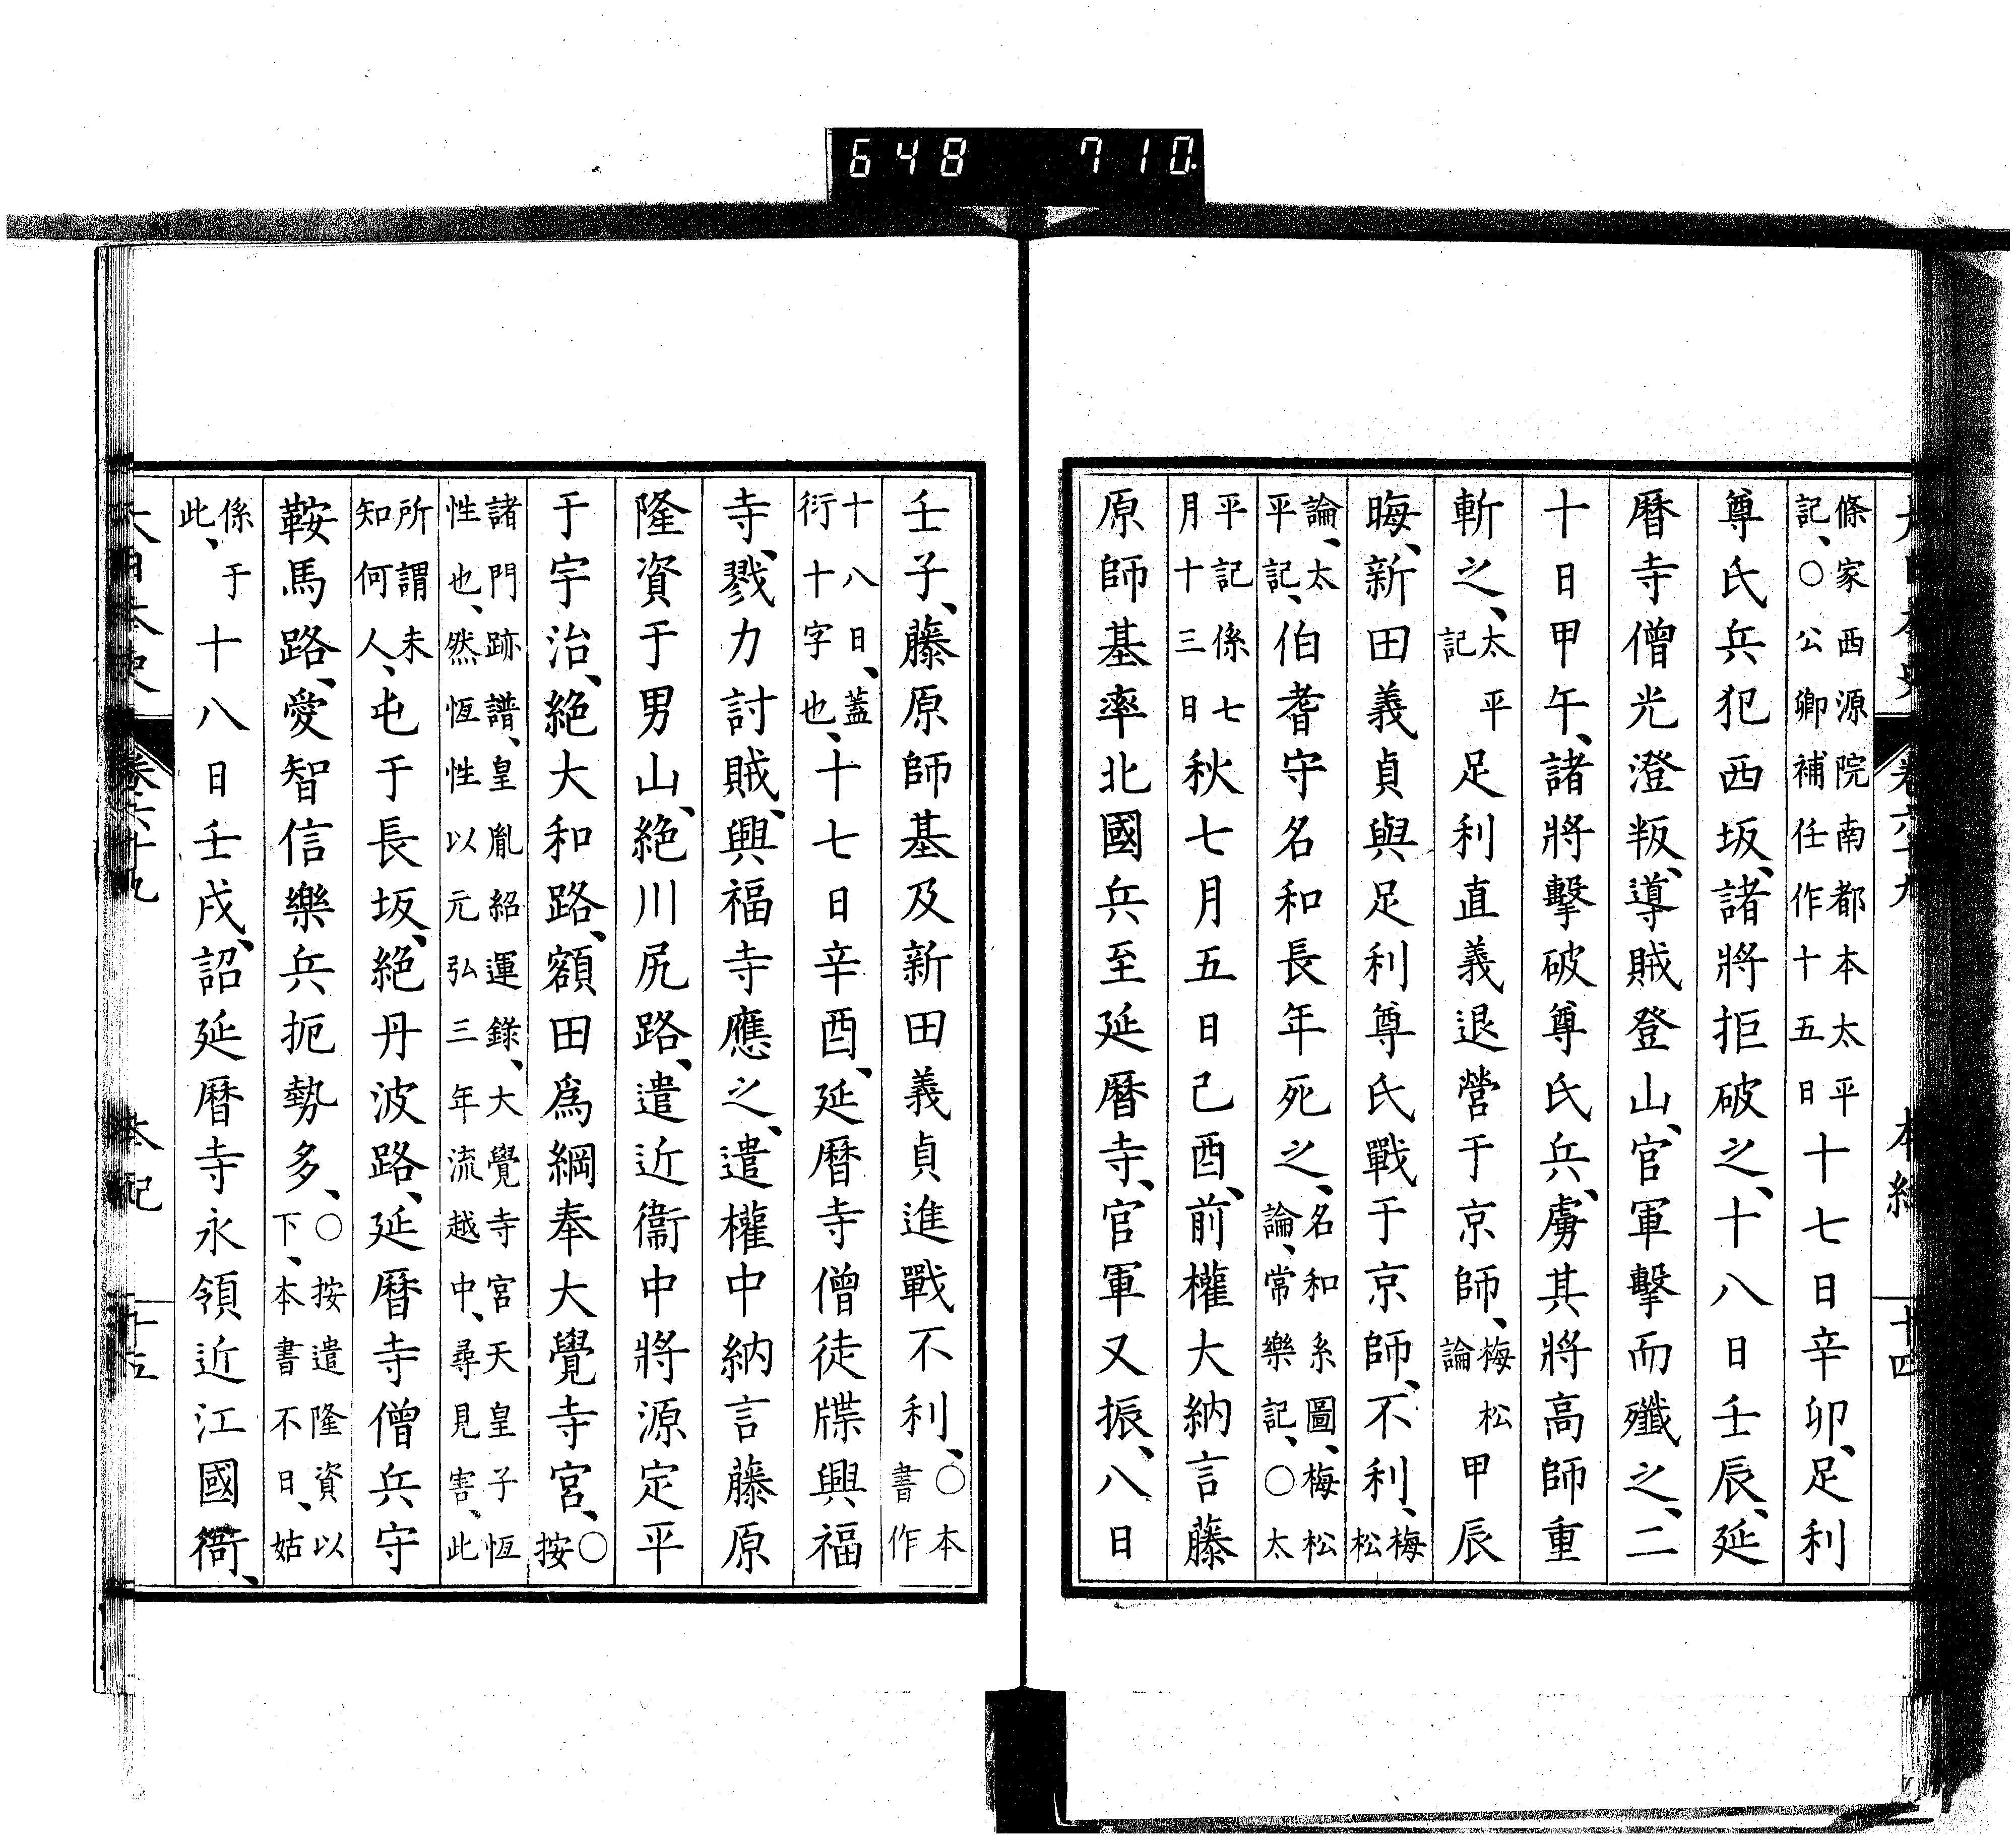 648 710.
大日本史 卷六十九 本紀 十四
條家西源院南都本太平記、〇公卿補任作十五日十七日辛卯、足利
尊氏兵犯西坂、諸將拒破之、十八日壬辰、延
曆寺僧光澄叛、導賊登山、官軍擊而殲之、二
十日甲午、諸將擊破尊氏兵、虜其將高師重
斬之、太平記足利直義退營于京師、梅松論甲辰
晦、新田義貞與足利尊氏戰于京師、不利、梅松
論、太平記、伯耆守名和長年死之、名和系圖、梅松論、常樂記、〇太
平記係七月十三日秋七月五日己酉、前權大納言藤
原師基率北國兵至延曆寺、官軍又振、八日
壬子、藤原師基及新田義貞進戰不利、〇本書作
十八日、蓋衍十字也、十七日辛酉、延曆寺僧徒牒興福
寺、戮力討賊、興福寺應之、遣權中納言藤原
隆資于男山、絕川尻路、遣近衞中將源定平
于宇治、絕大和路、額田爲綱奉大覺寺宮、〇按
諸門跡譜、皇胤紹運錄、大覺寺宮天皇子恆性也、然恆性以元弘三年流越中、尋見害、此
所謂未知何人、屯于長坂、絕丹波路、延曆寺僧兵守
鞍馬路、愛智信樂兵扼勢多、〇按遣隆資以下、本書不日、姑
係于此、十八日壬戌、詔延曆寺永領近江國衙、
大日本史 卷六十九 本紀 十五